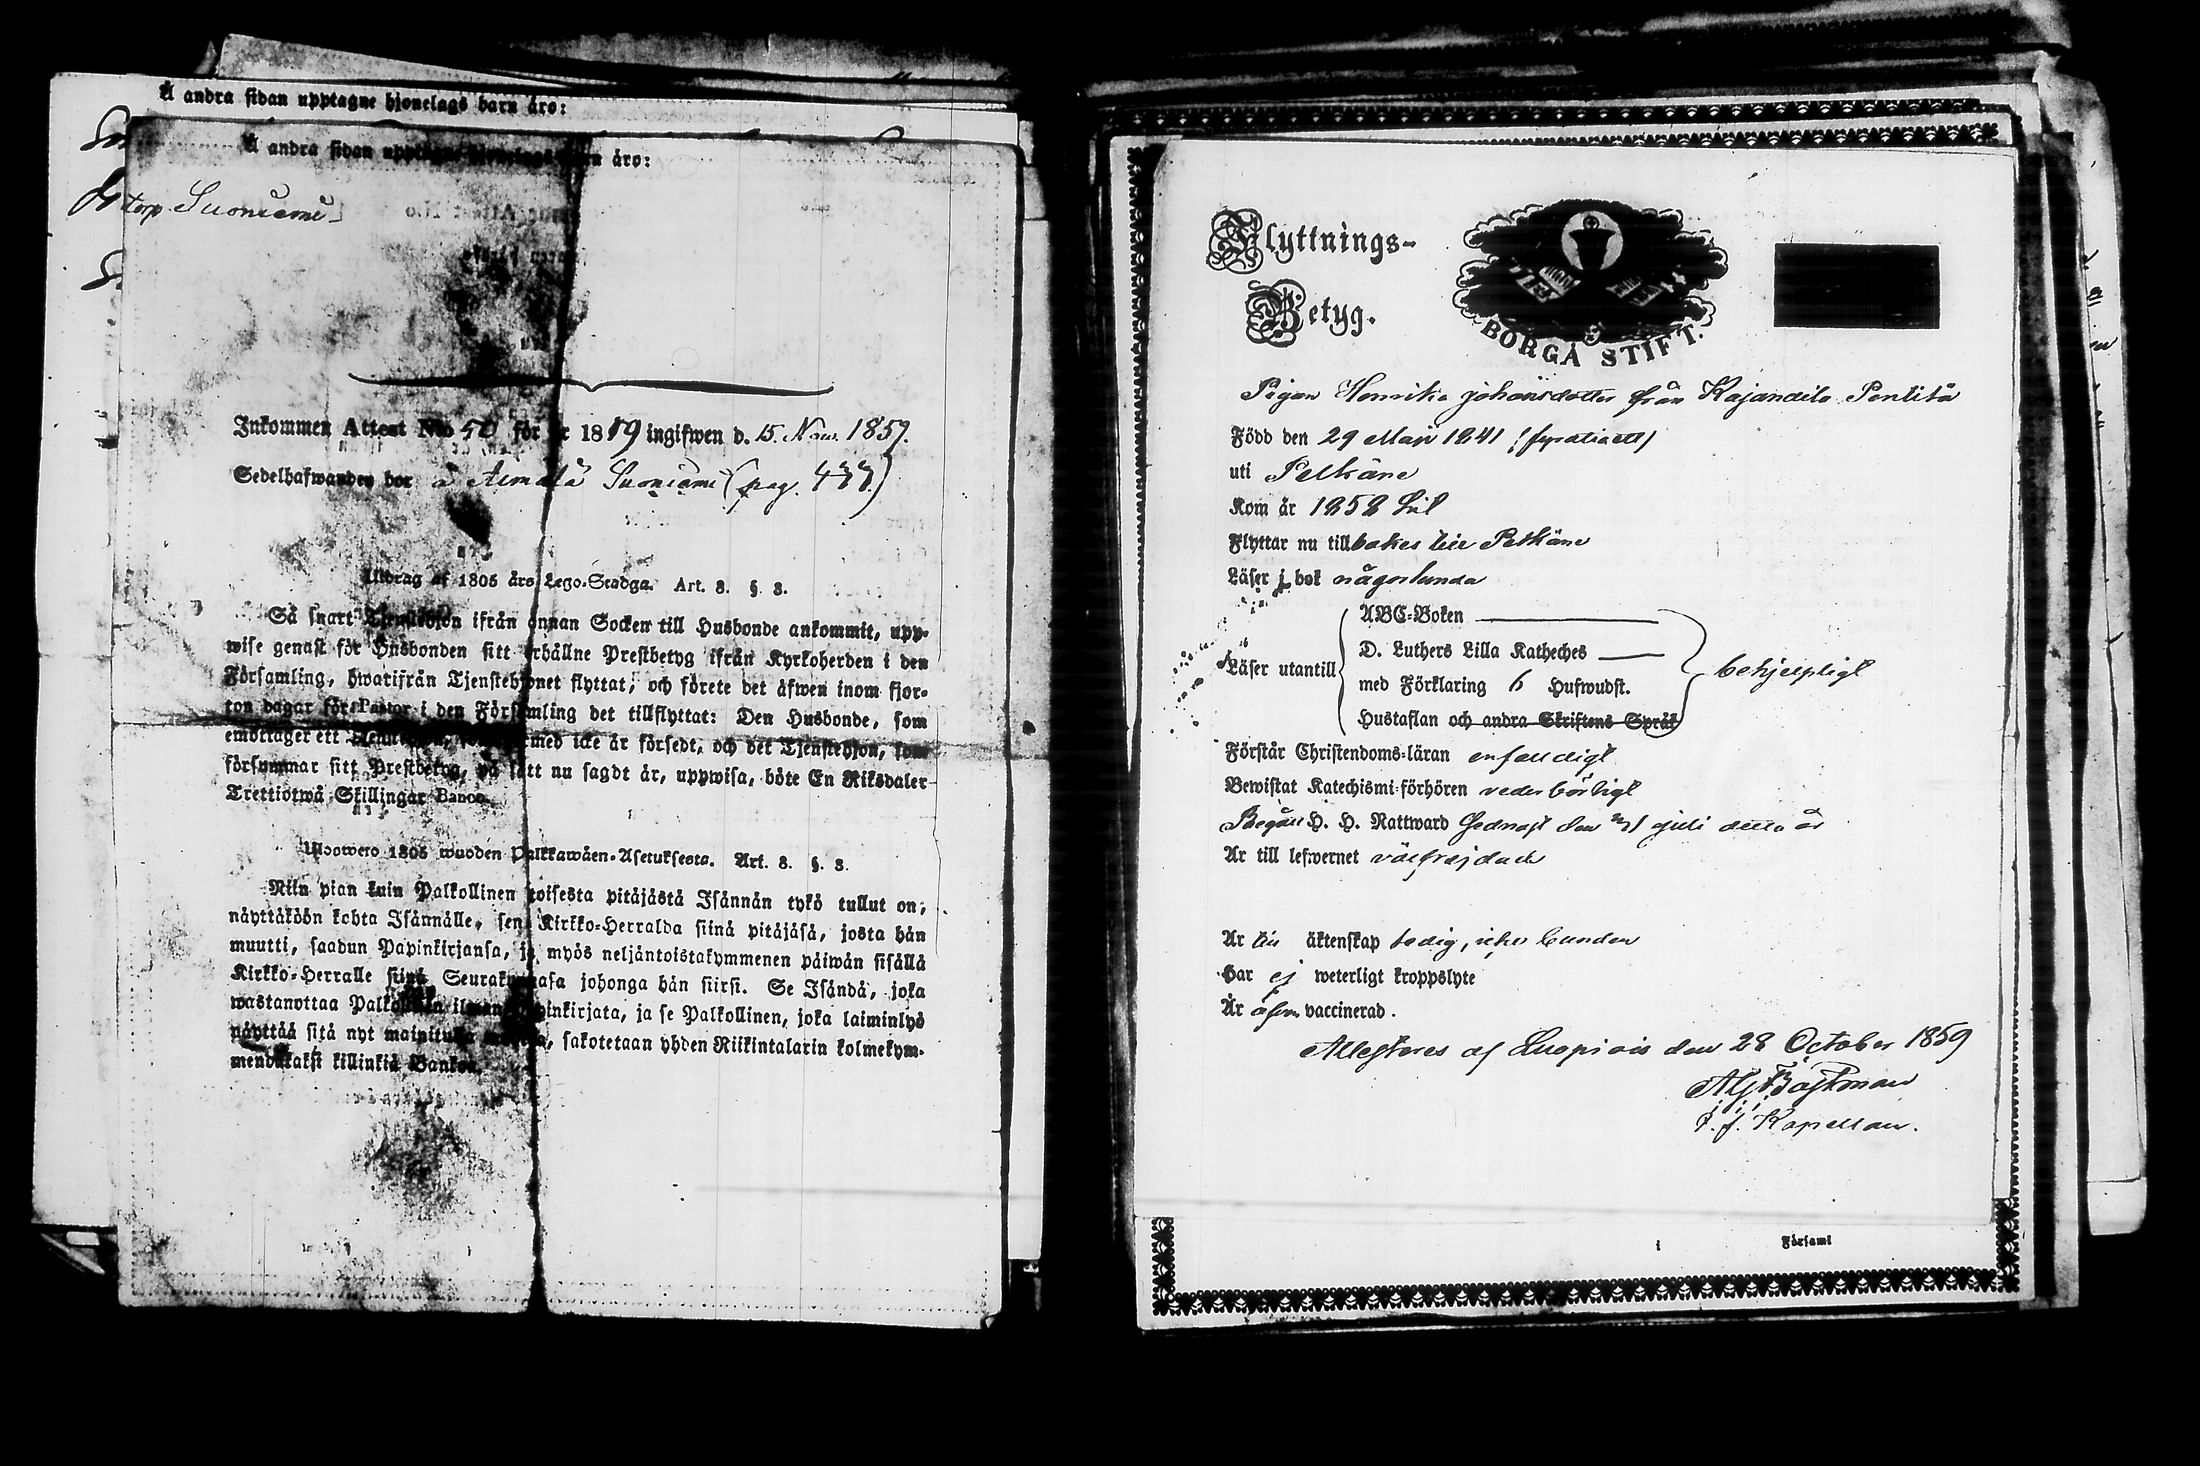 Å andra sidan upptagne hjonelags barn äro:
Å andra sidan upptagne hjonelags barn äro:
torp. Suoniemi
Inkommen Attest No 50 för år 1859 ingifwen d. 15. Nov. 1859.
Sedelhafwanden bor å Aimälä Suoniemi (pag. 477.)
Utdrag af 1805 års Lego-Stadga. Art. 8. §. 3.
Så snart Tjenstehjon ifrån annan Socken till Husbonde ankommit, upp-
wise genast för Husbonden sitt erhållne Prestbetyg ifrån Kyrkoherden i den
Församling, hwarifrån Tjenstehjonet flyttat, och förete det äfwen inom fjor-
ton dagar för Pastor i den Församling det tillflyttat: Den Husbonde, som
emottager ett Tjenstehjon, som dermed icke är försedt, och det Tjenstehjon, som
försummar sitt Prestbetyg, på sätt nu sagdt är, uppwisa, böte En Riksdaler
Trettiotwå Skillingar Banco.
Ulosweto 1805 wuoden Palkkawäen-Asetuksesta. Art. 8. §. 3.
Niin pian kuin Palkollinen toisesta pitäjästä Isännän tykö tullut on,
näyttäköön kohta Isännälle, sen Kirkko-Herralda siinä pitäjäsä, josta hän
muutti, saadun Papinkirjansa, ja myös neljäntoistakymmenen päiwän sisällä
Kirkko-Herralle siinä Seurakunnasa johonga hän siirsi. Se Isändä, joka
wastanottaa Palkollisen ilman Papinkirjata, ja se Palkollinen, joka laiminlyö
näyttää sitä nyt mainitulla muotoa, sakotetaan yhden Riikintalarin kolmekym-
mendäkaksi killinkiä Bankoa.
Flyttnings-
Betyg.
BORGÅ STIFT.
Pigan Henrika Johansdotter från Kajandila Penttilä
Född den 29 Maji 1841 (fyratiett)
uti Pelkäne
Kom år 1858 hit
Flyttar nu tillbakes till Pelkäne
Läser i bok någorlunda
Läser utantill
ABC-Boken
D. Luthers Lilla Katheches
med Förklaring 6 Hufwudst.
Hustaflan och andra Skriftens Språk
behjelpligt
Förstår Christendoms-läran enfaldigt
Bewistat Katechismi-förhören vederbörligt
Begått H. H. Nattward sednast den 31 juli detta år
Är till lefwernet välfrejdad
Är till äktenskap ledig, icke bunden
Har ej weterligt kroppslyte
Är äfven vaccinerad.
Attesteres af Luopiois den 28 October 1859
Kapellan.
i Församl